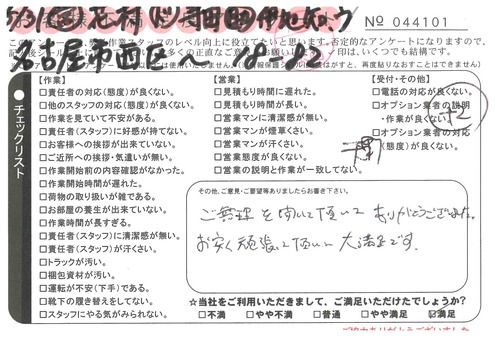 № 044101
名古屋市西区へ
チェックリスト
【作業】
□責任者の対応(態度)が良くない。
□他のスタッフの対応(態度)が良くない。
□作業を見ていて不安がある。
□責任者(スタッフ)に好感が持てない。
□お客様への挨拶が出来ていない。
□ご近所への挨拶・気遣いが無い。
□作業開始前の内容確認がなかった。
□作業開始時間が遅れた。
□荷物の取り扱いが雑である。
□お部屋の養生が出来ていない。
□作業時間が長すぎる。
□責任者(スタッフ)に清潔感が無い。
□責任者(スタッフ)が汗くさい。
□トラックが汚い。
□梱包資材が汚い。
□運転が不安(下手)である。
□靴下の履き替えをしてない。
□スタッフにやる気がみられない。
【営業】
□見積もり時間に遅れた。
□見積もり時間が長い。
□営業マンに清潔感が無い。
□営業マンが煙草くさい。
□営業マンが汗くさい。
□営業態度が良くない。
□営業の説明と作業が一致してない。
【受付・その他】
□電話の対応が良くない。
□オプション業者の説明
・作業が良くない
□オプション業者の対応
(態度)が良くない。
その他、ご意見・ご要望等ありましたらお書き下さい。
ご無理を聞いて頂いて ありがとうございました。
お安く頑張って頂いて 大満足です。
☆当社をご利用いただきまして、ご満足いただけたでしょうか?
□不満 □やや不満 □普通 □やや満足 ☑満足